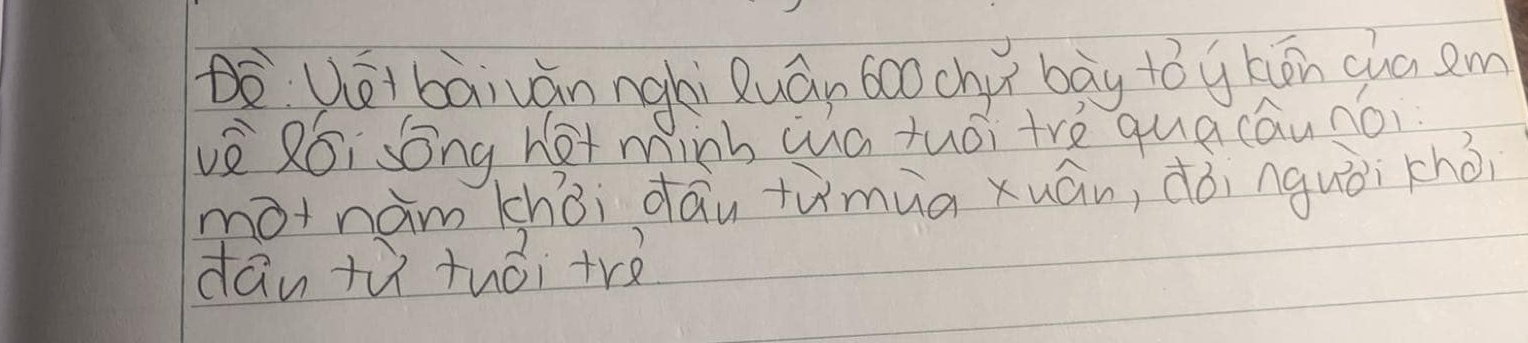 Đề: Viết bài văn nghị luận 600 chữ bày tỏ ý kiến của em
về lối sống hết mình của tuổi trẻ qua câu nói:
một năm khởi đầu từ mùa xuân, đời người khởi
đầu từ tuổi trẻ